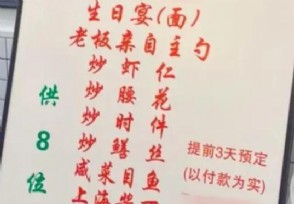 生日宴(面)
老板亲自主勺
炒虾仁
炒腰花
炒时件
炒鳝丝
咸菜目鱼
上海
供8位
提前3天预定
(以付款为实)